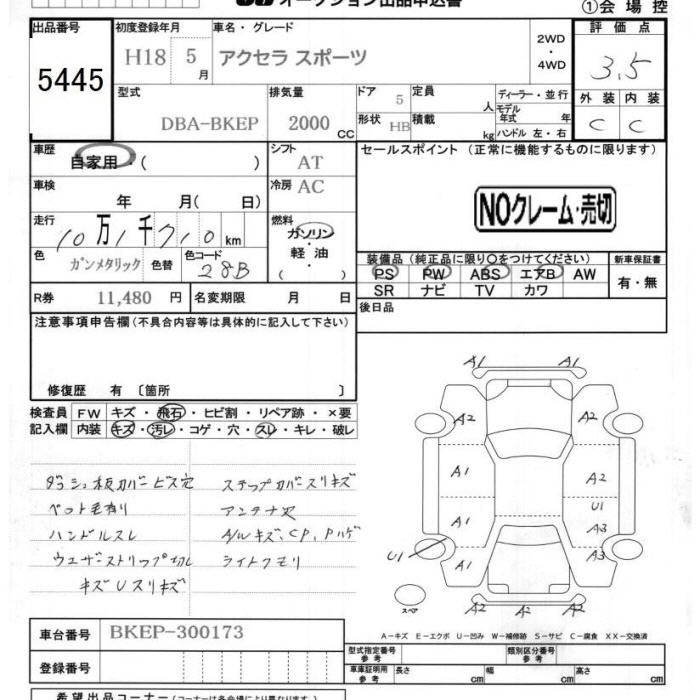 オークション出品申込書
①会場控
出品番号
5445
初度登録年月
H18 5月
車名・グレード
アクセラ スポーツ
2WD
・
4WD
評価点
3.5
型式
DBA-BKEP
排気量
2000 CC
ドア 5
定員 人
形状 HB
積載 kg
ディーラー・並行
モデル年式 年
ハンドル 左・右
外装 内装
C C
車歴
自家用・( )
シフト AT
車検
年 月( 日)
冷房 AC
走行
10万1千710km
燃料
ガソリン
・
軽油
( )
色 ガンメタリック
色替
色コード
28B
R券 11,480 円
名変期限 月 日
セールスポイント (正常に機能するものに限ります)
NOクレーム・売切
装備品(純正品に限り〇をつけてください)
PS PW ABS エアB AW
SR ナビ TV カワ
新車保証書
有・無
後日品
注意事項申告欄(不具合内容等は具体的に記入して下さい)
修復歴 有〔箇所 〕
検査員 記入欄
FW キズ・飛石・ヒビ割・リペア跡・×要
内装 キズ・汚レ・コゲ・穴・スレ・キレ・破レ
ダッシュ板カバービス穴
ペット毛有り
ハンドルスレ
ウェザーストリップ切レ
キズUスリキズ
ステップカバースリキズ
アンテナ欠
A/Wキズ、CP、Pハゲ
ライトクモリ
A1 A1
A2 A2
A1 A2
U1
A1 A3
U1 A1 A3
A2 A2 A2
スペア
A-キズ E-エクボ U-凹み W-補修跡 S-サビ C-腐食 XX-交換済
車台番号 BKEP-300173
登録番号
型式指定番号 参考
類別区分番号 参考
車庫証明用 参考
長さ cm 幅 cm 高さ cm
希望出品コーナー(コーナーは各会場により異なります)